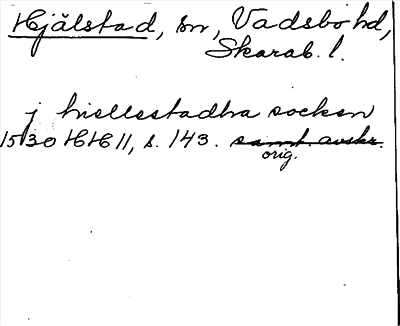 Hjälstad, sn, Vadsbo hd,
Skarab. l.
j hiellestadha socken
1530 HH 11, s. 143. samt. avskr.
orig.